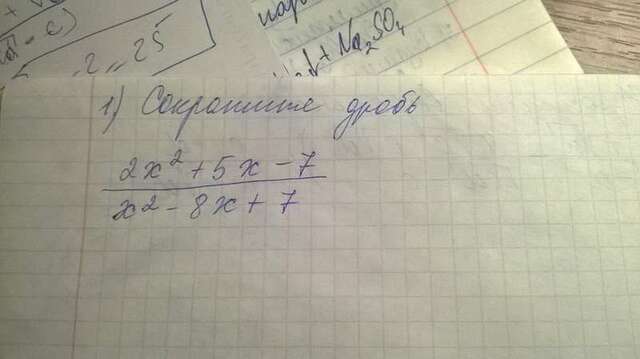 25
Na₂SO₄
1) Сократите дробь
2x² + 5x - 7
x² - 8x + 7